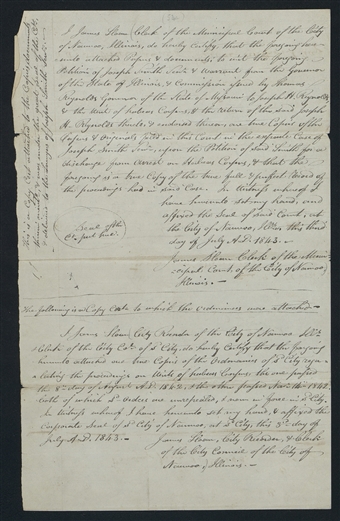 I James Sloan Clerk of the Municipal Court of the City
of Nauvoo, Illinois, do hereby Certify, that the foregoing
unto attached Papers & documents, to wit the foregoing
Petition of Joseph Smith Senr. & Warrant from the Governor
of the State of Illinois, & Commission from by Thomas
Reynolds Governor of the State of Missouri to Joseph H. Reynolds
& the Writ of Habeas Corpus, & the return of the said Joseph
H. Reynolds thereto, & endorsed thereon, are true Copies of the
Papers & Originals filed in this Court in the aforesaid Case of
Joseph Smith Senr. upon the Petition of said Smith for a
discharge from arrest on Habeas Corpus, & that the
foregoing is a true Copy of the true full & perfect Record of
the proceedings had in said Case. In Witness whereof I
have hereunto set my hand, and
affixed the Seal of said Court, at
the City of Nauvoo, Ills. this third
day of July A.D. 1843.
Seal of the
James Sloan Clerk of the Muni-
cipal Court of the City of Nauvoo,
Illinois.
The following is a Copy to which the Ordinances were attached
I James Sloan City Recorder of the City of Nauvoo Ills.
& Clerk of the City of sd. City, do hereby Certify that the foregoing
hereunto attached are true Copies of the Ordinances of sd. City regu-
lating the proceedings on Writs of habeas Corpus the one passed
the 8th. day of August A.D. 1842, & the other passed Novr. 14th. 1842
both of which sd. Orders are unrepealed, & now in force in sd. City.
In Witness whereof I have hereunto set my hand, & affixed the
corporate Seal of sd. City of Nauvoo, at sd. City, this 3rd. day of
July A.D. 1843.
James Sloan, City Recorder, & Clerk
of the City Council of the City of
Nauvoo, Illinois.